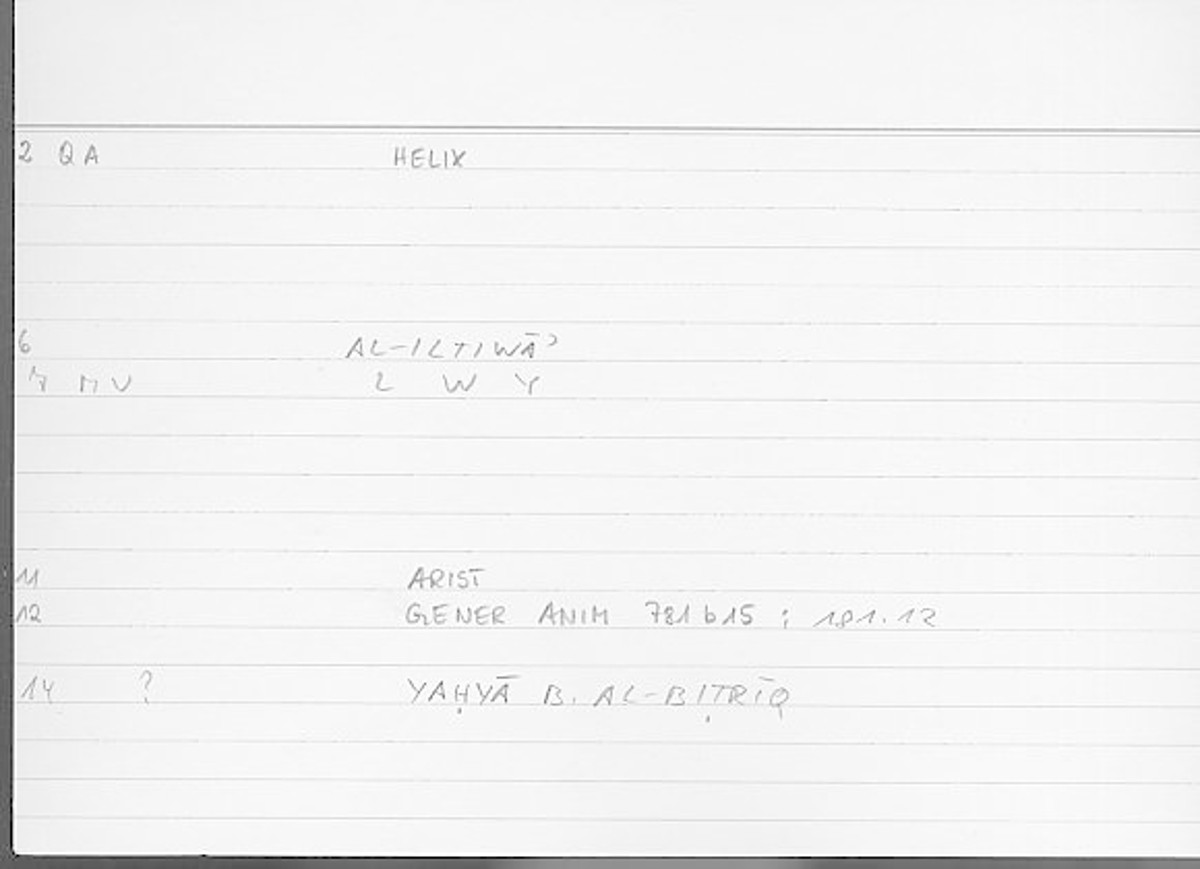 2 QA HELIX
6 AL-ILTIWĀʾ
7 MV L W Y
11 ARIST
12 GENER ANIM 781b15 ; 181.12
14 ? YAḤYĀ B. AL-BIṬRĪQ